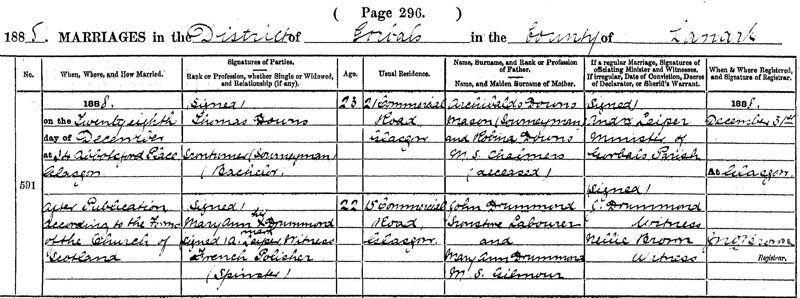 ( Page 296. )
1888. MARRIAGES in the District of Gorbals in the County of Lanark
No.
When, Where, and How Married.
Signatures of Parties.
Rank or Profession, whether Single or Widowed, and Relationship (if any).
Age.
Usual Residence.
Name, Surname, and Rank or Profession of Father.
Name, and Maiden Surname of Mother.
If a regular Marriage, Signatures of officiating Minister and Witnesses.
If irregular, Date of Conviction, Decree of Declarator, or Sheriff's Warrant.
When & Where Registered, and Signature of Registrar.
591
1888.
on the Twenty eighth
day of December
at 34 Abbotsford Place
Glasgow
After Publication
according to the Forms
of the Church of
Scotland
(Signed)
Thomas Downs
Iron turner (Journeyman)
(Bachelor)
(Signed)
Mary Ann her X mark Drummond
Signed A. Leiper Witness
French Polisher
(Spinster)
23
22
21 Commercial
Road
Glasgow
15 Commercial
Road,
Glasgow.
Archibald Downs
Mason (Journeyman)
and Robina Downs
M.S. Chalmers
(deceased)
John Drummond
Labourer
and
Mary Ann Drummond
M.S. Gilmour
(Signed)
And. Leiper
Minister of
Gorbals Parish
(Signed)
J. Drummond
Witness
Nellie Brown
Witness
1888.
December 31st
At Glasgow.
Registrar.